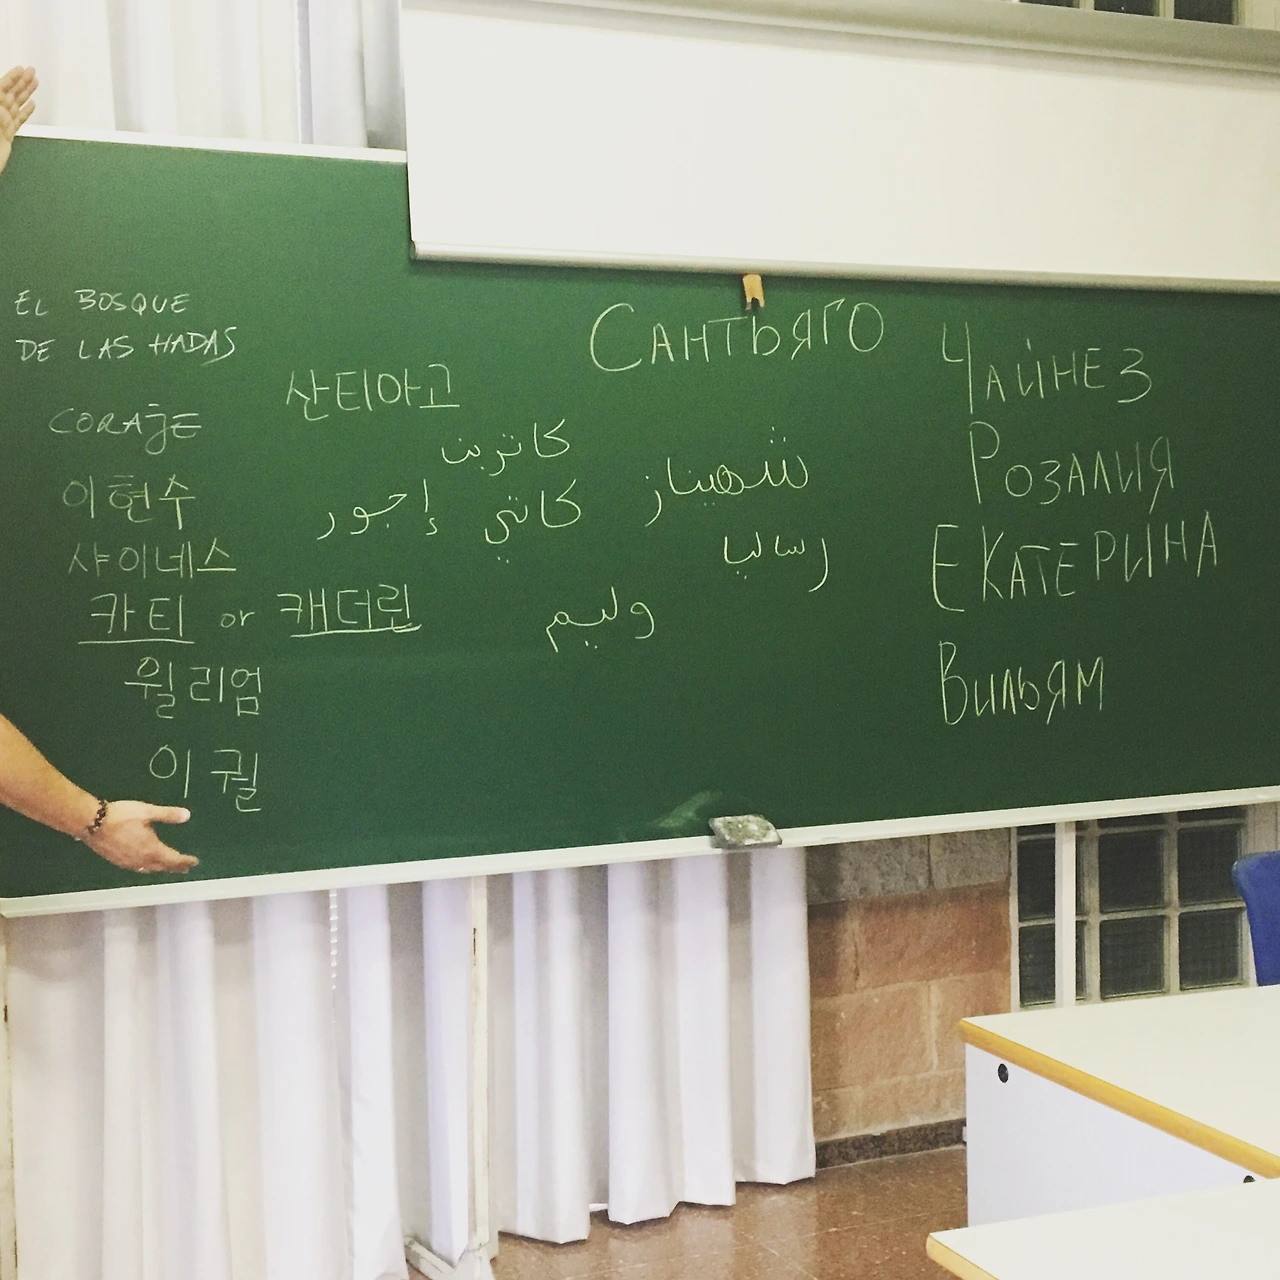 EL BOSQUE
DE LAS HADAS
CORAJE
산티아고
이현수
샤이네스
카티 or 캐더린
윌리엄
이궐
كاترين
كاتي
إجور
شهيناز
رساليا
وليم
Сантьяго
Чайнез
Розалия
Екатерина
Вильям